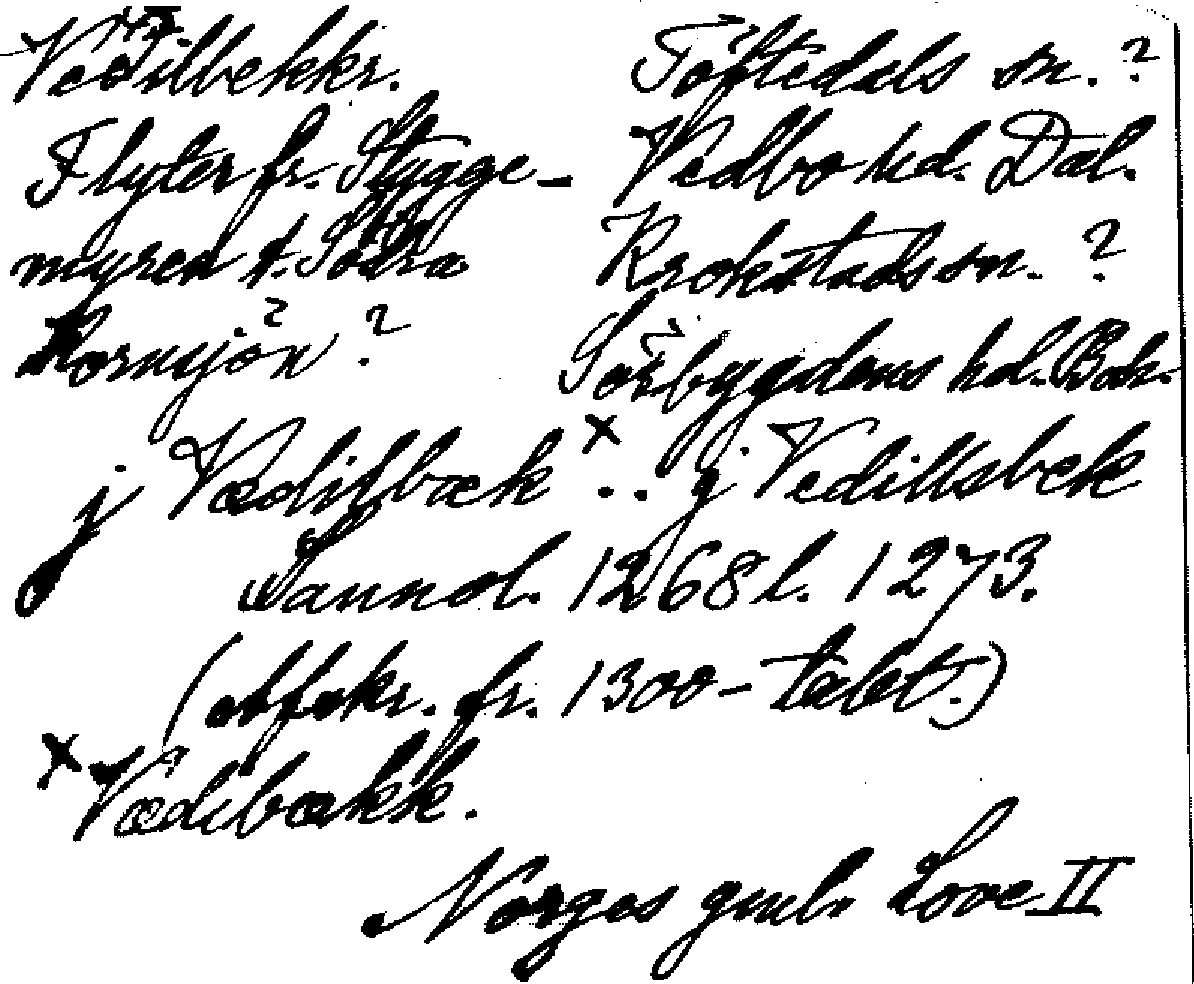 Vædilbekkr.
Töftedals sn. ?
Flyter fr. Stygge-
Vedbo hd. Dal.
myren t. Södra
Krokstads sn. ?
Kornsjön ? ?
Sörbygdens hd. Boh.
j Vædilbæk x . . j Vedillsbek
Sannol. 1268 l. 1273.
(Afskr. fr. 1300-talet.)
x Vædibækk.
Norges gml. Love II